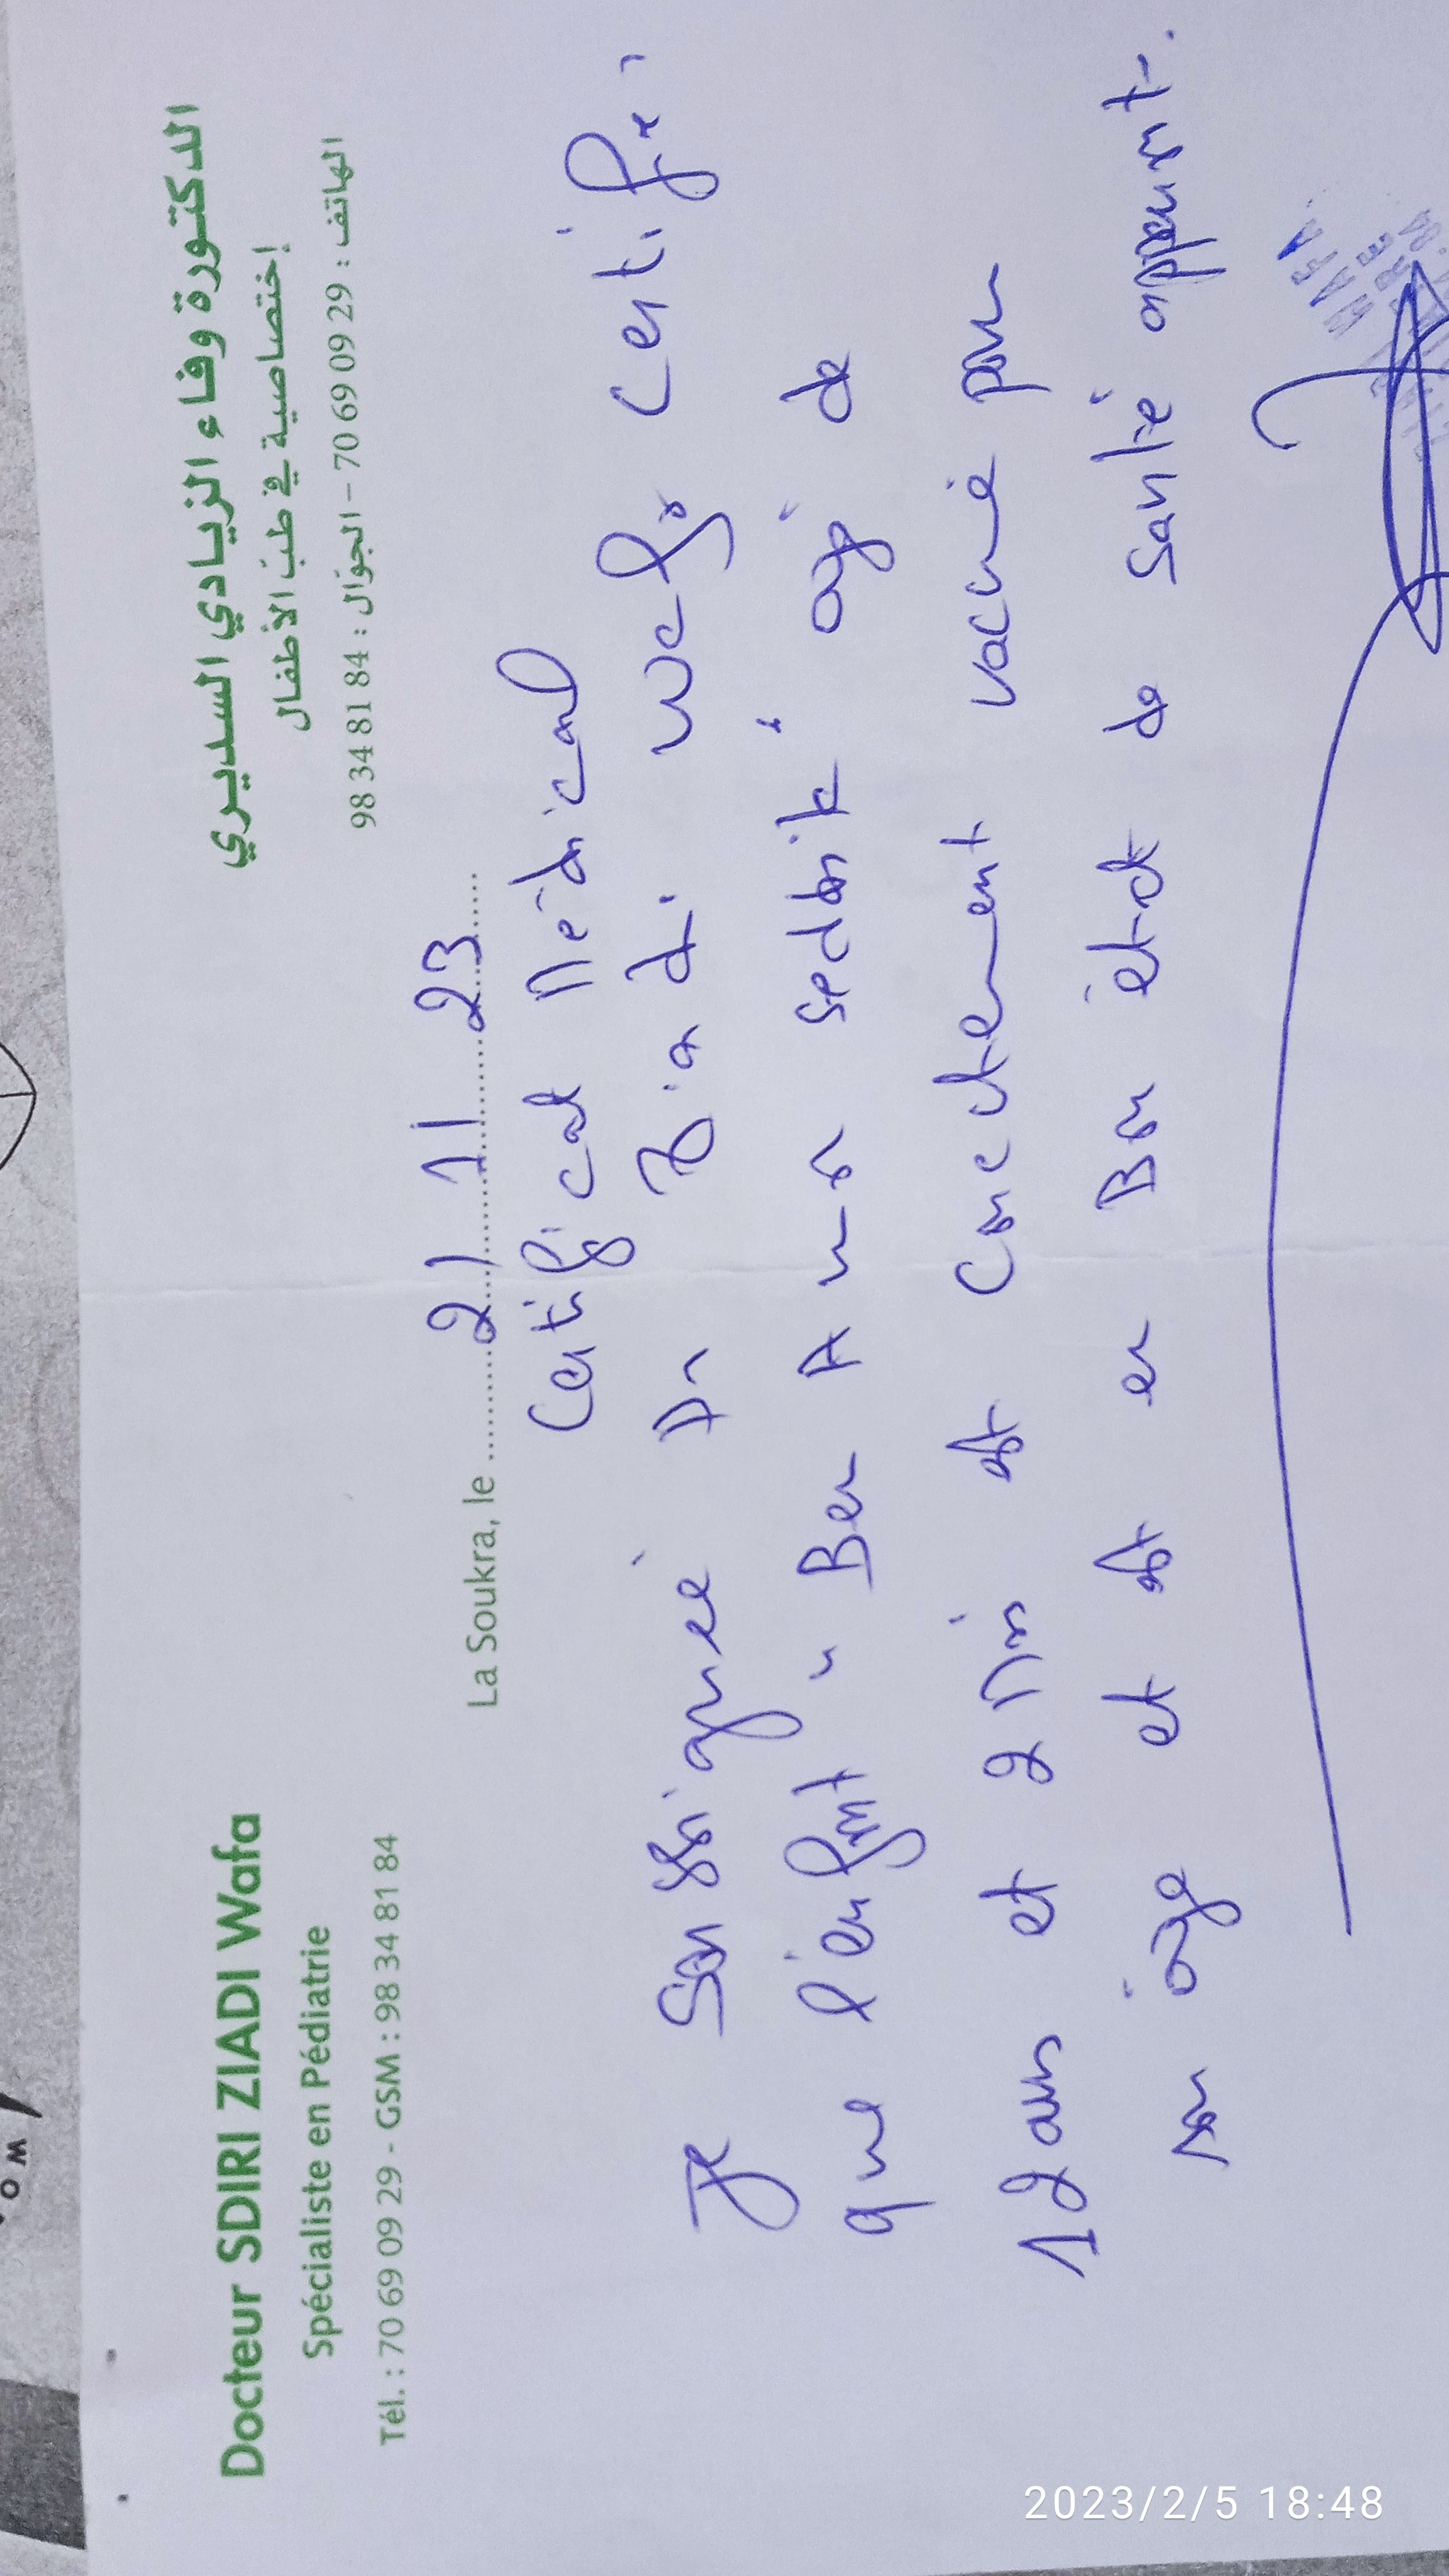 Docteur SDIRI ZIADI Wafa
Spécialiste en Pédiatrie
Tél. : 70 69 09 29 - GSM : 98 34 81 84
الدكتورة وفاء الزيادي السديري
إختصاصية في طب الأطفال
الهاتف : 29 09 69 70 – الجوّال : 84 81 34 98
La Soukra, le 21 11 23
Certificat Médical
Je soussignée Dr Ziadi Wafa certifie
que l'enfant " Ben Amor " agé de
12 ans et 2 Mois est correctement vacciné pour
son âge et est en Bon état de santé apparent.
WAFA
2023/2/5 18:48